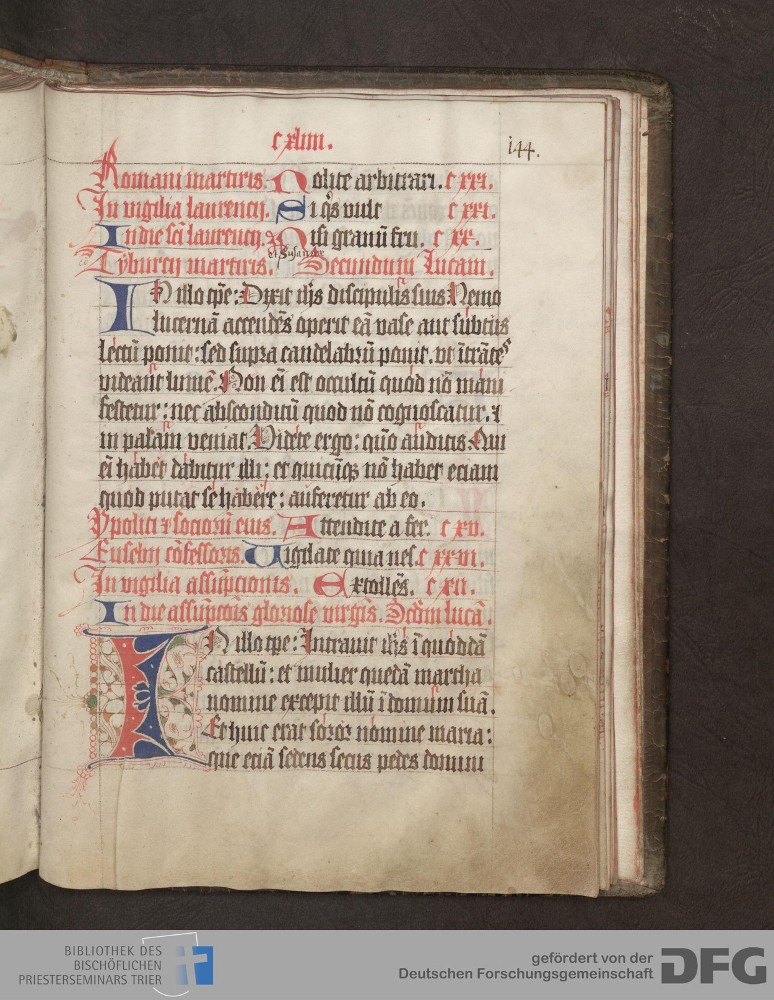 cxliiii.
144.
Romani martiris. Nolite arbitrari. c xxi.
In vigilia laurencij. Si q̄s vult c xxi.
In die sc̄i laurencij. Nisi granū fru. c xx.
et Susanne
Tyburcij martiris. Secundum lucam.
IN illo tp̄e: Dixit ih̄s discipulis suis Nemo
lucernā accendēs operit eā vase aut subtus
lectū ponit: sed supra candelabrū ponit. vt ītrātes
videant lumē. Non eī est occultū quod nō mani
festetur: nec absconditū quod nō cognoscatur. ⁊
in palam veniat Videte ergo: quō auditis. Qui
eī habet dabitur illi: et quicūqꝫ nō habet eciam
quod putat se habere: auferetur ab eo.
Ypoliti ⁊ sociorū eius. Attendite a fer. c xv.
Eusebij cōfessoris. Uigilate quia nes. c xxvi.
In vigilia assūpcionis. Extollēs. c xii.
In die assūpcōis gloriose virgīs. Scdm̄ lucā.
IN illo tp̄e: Intrauit ih̄s ī quoddā
castellū: et mulier quedā martha
nomine excepit illū ī domum suā.
Et huic erat soror nomine maria:
que eciā sedens secus pedes domini
BIBLIOTHEK DES
BISCHÖFLICHEN
PRIESTERSEMINARS TRIER
gefördert von der
Deutschen Forschungsgemeinschaft DFG